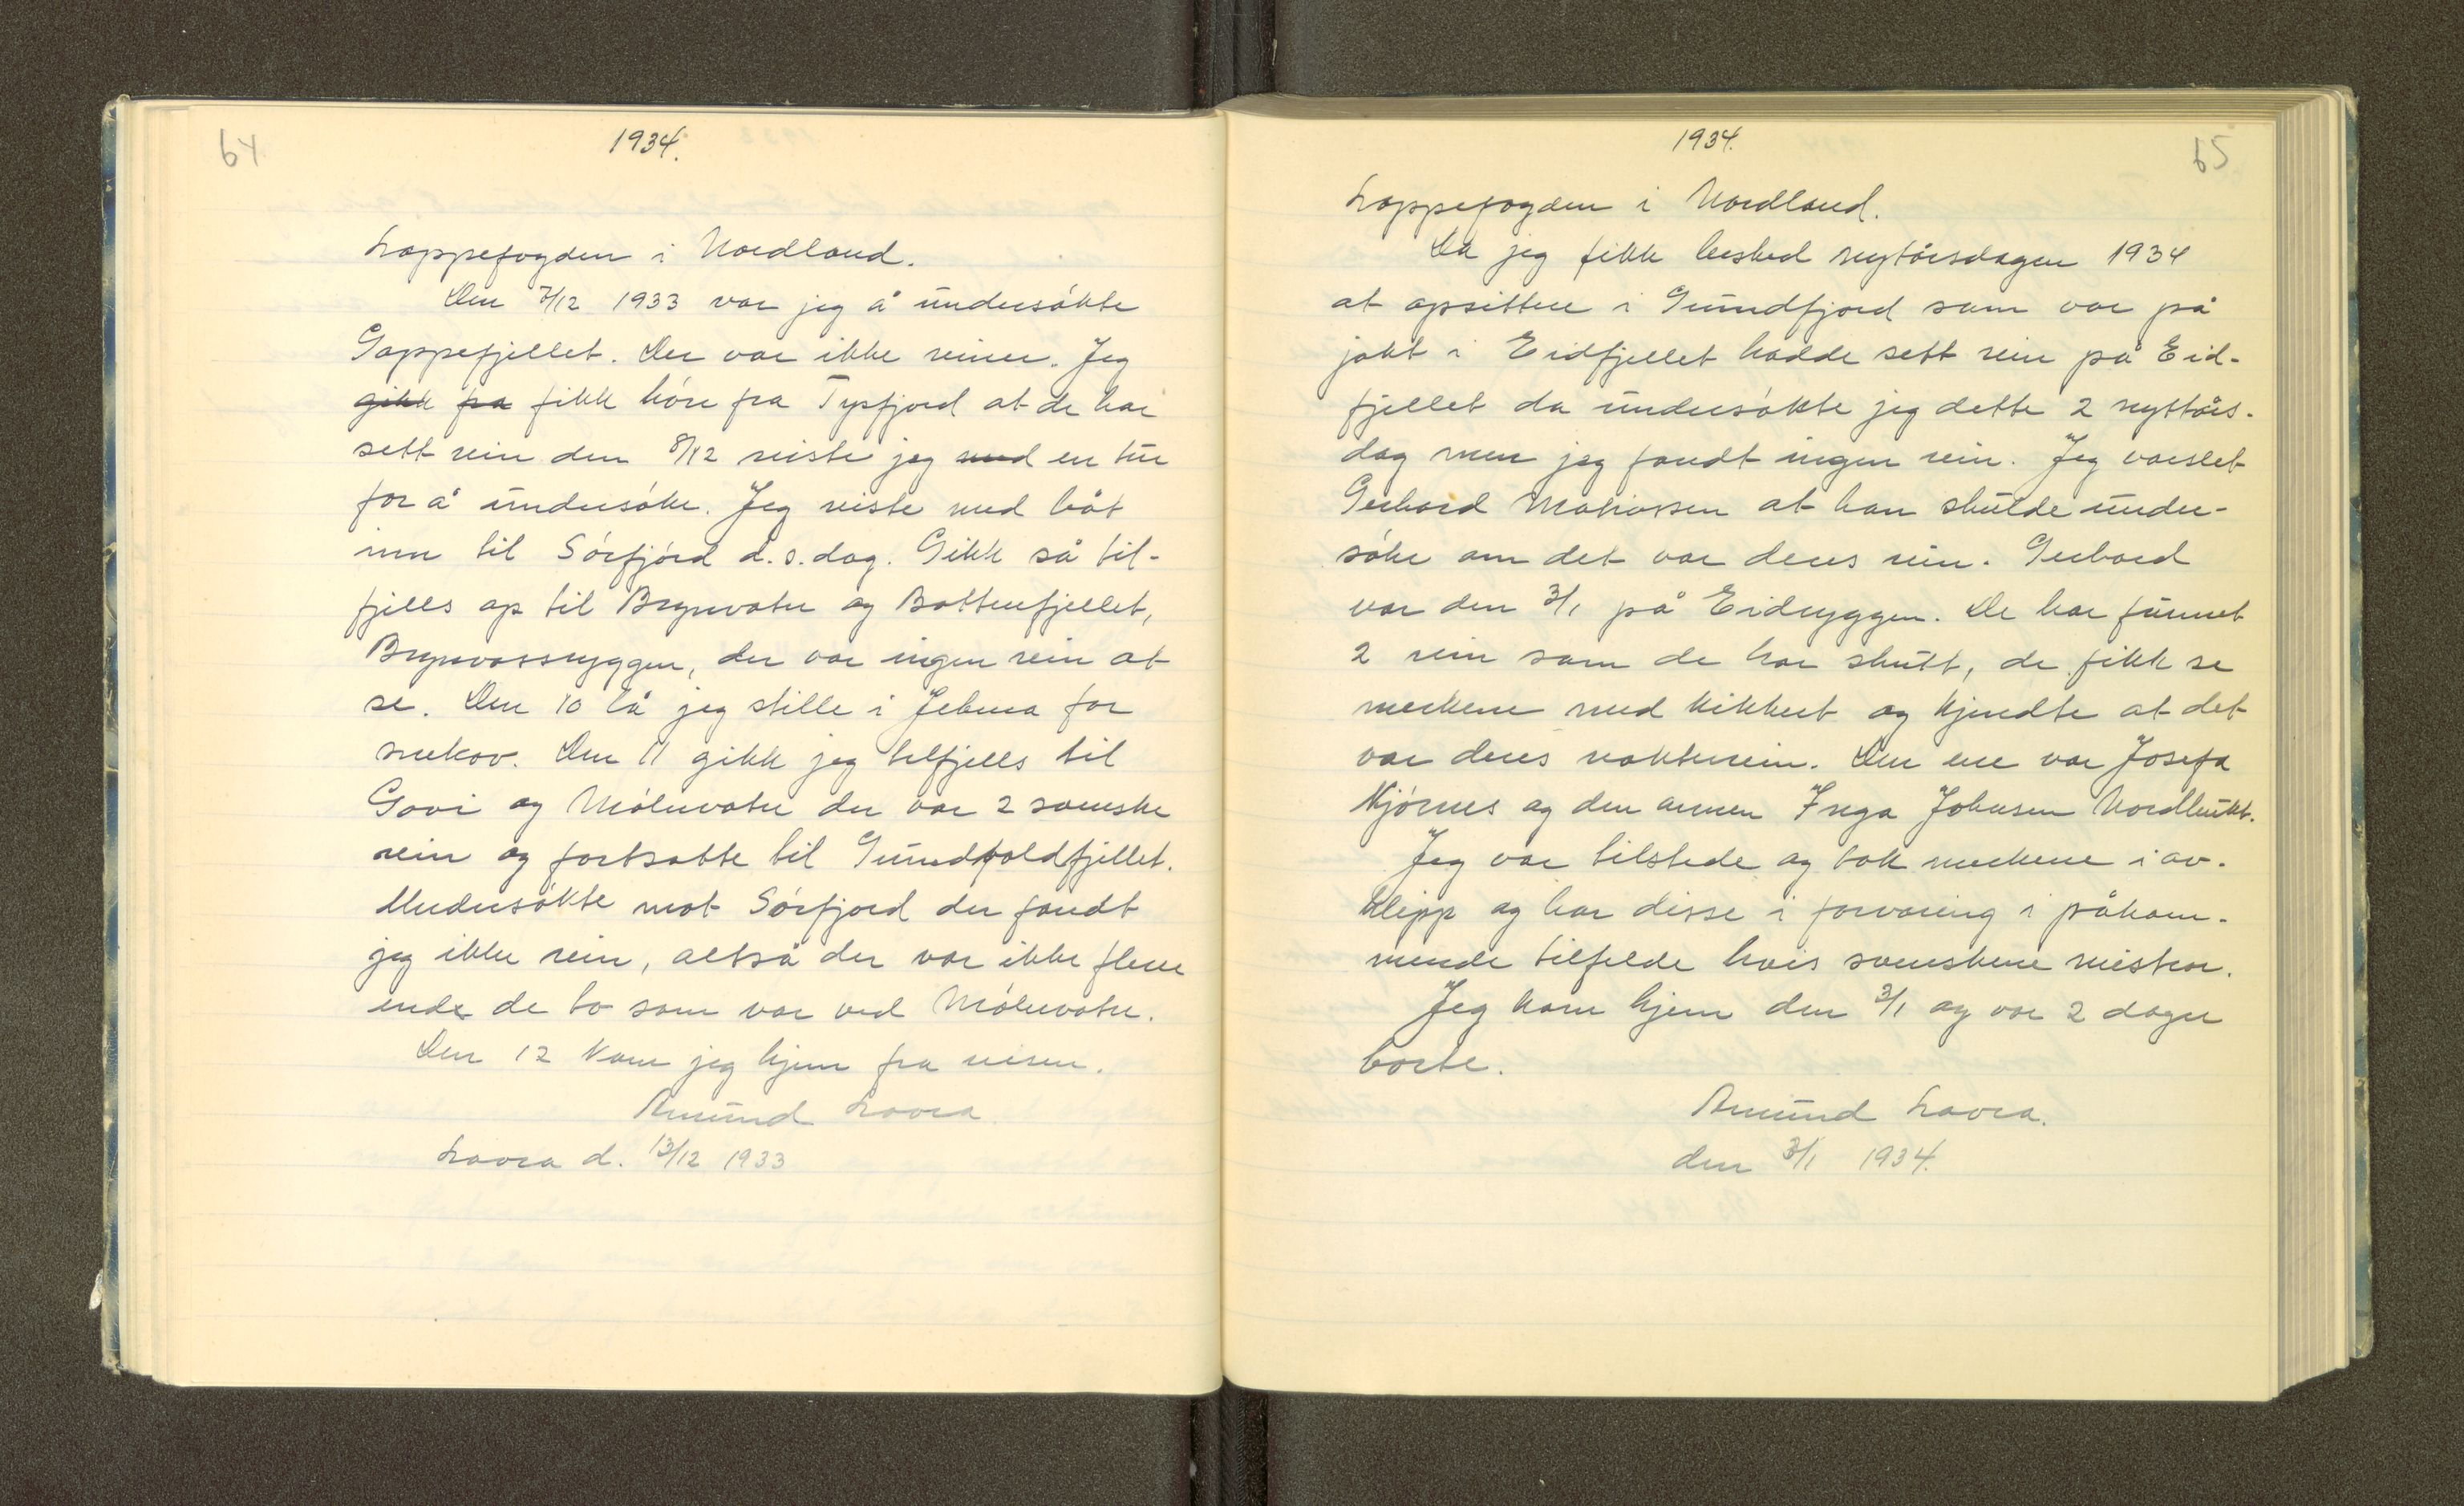 64
1934.
Lappefogden i Nordland.
Den 7/12 1933 var jeg å undersøkte
Gappefjellet. Der var ikke reiner. Jeg
gikk fra fikk høre fra Tysfjord at de har
sett rein den 8/12 reiste jeg med en tur
for å undersøke. Jeg reiste med båt
inn til Sørfjord d.s.dag. Gikk så til-
fjells op til Brynvatn og Bottenfjellet,
Brynvassryggen, der var ingen rein at
se. Den 10 lå jeg stille i for
snekov. Den 11 gikk jeg tilfjells til
Govi og Mølnvatn der var 2 svenske
rein og fortsatte til Grundfjoldfjellet.
Undersøkte mot Sørfjord der fandt
jeg ikke rein, altså der var ikke flere
ende de to som var ved Mølnvatn.
Den 12 kom jeg hjem fra reisen.
Amund Lavra
Lavra d. 13/12 1933
65
1934.
Lappefogden i Nordland.
Da jeg fikk besked nytårsdagen 1934
at opsittere i Grundfjord som var på
jakt i Eidfjellet hadde sett rein på Eid-
fjellet da undersøkte jeg dette 2 nyttårs-
dag men jeg fandt ingen rein. Jeg varslet
Gerhard Matiassen at han skulde under-
søke om det var deres rein. Gerhard
var den 3/1 på Eidryggen. De har funnet
2 rein som de har skutt, de fikk se
merkene med kikkert og kjendte at det
var deres rein. Den ene var Josefa
Kjørnes og den annen Inga Johnsen Nordbukt.
Jeg var tilstede og tok merkene i av-
klipp og har disse i forvaring i påkom-
mende tilfelde hvis svenskene mistror.
Jeg kom hjem den 3/1 og var 2 dager
borte.
Amund Lavra.
den 3/1 1934.